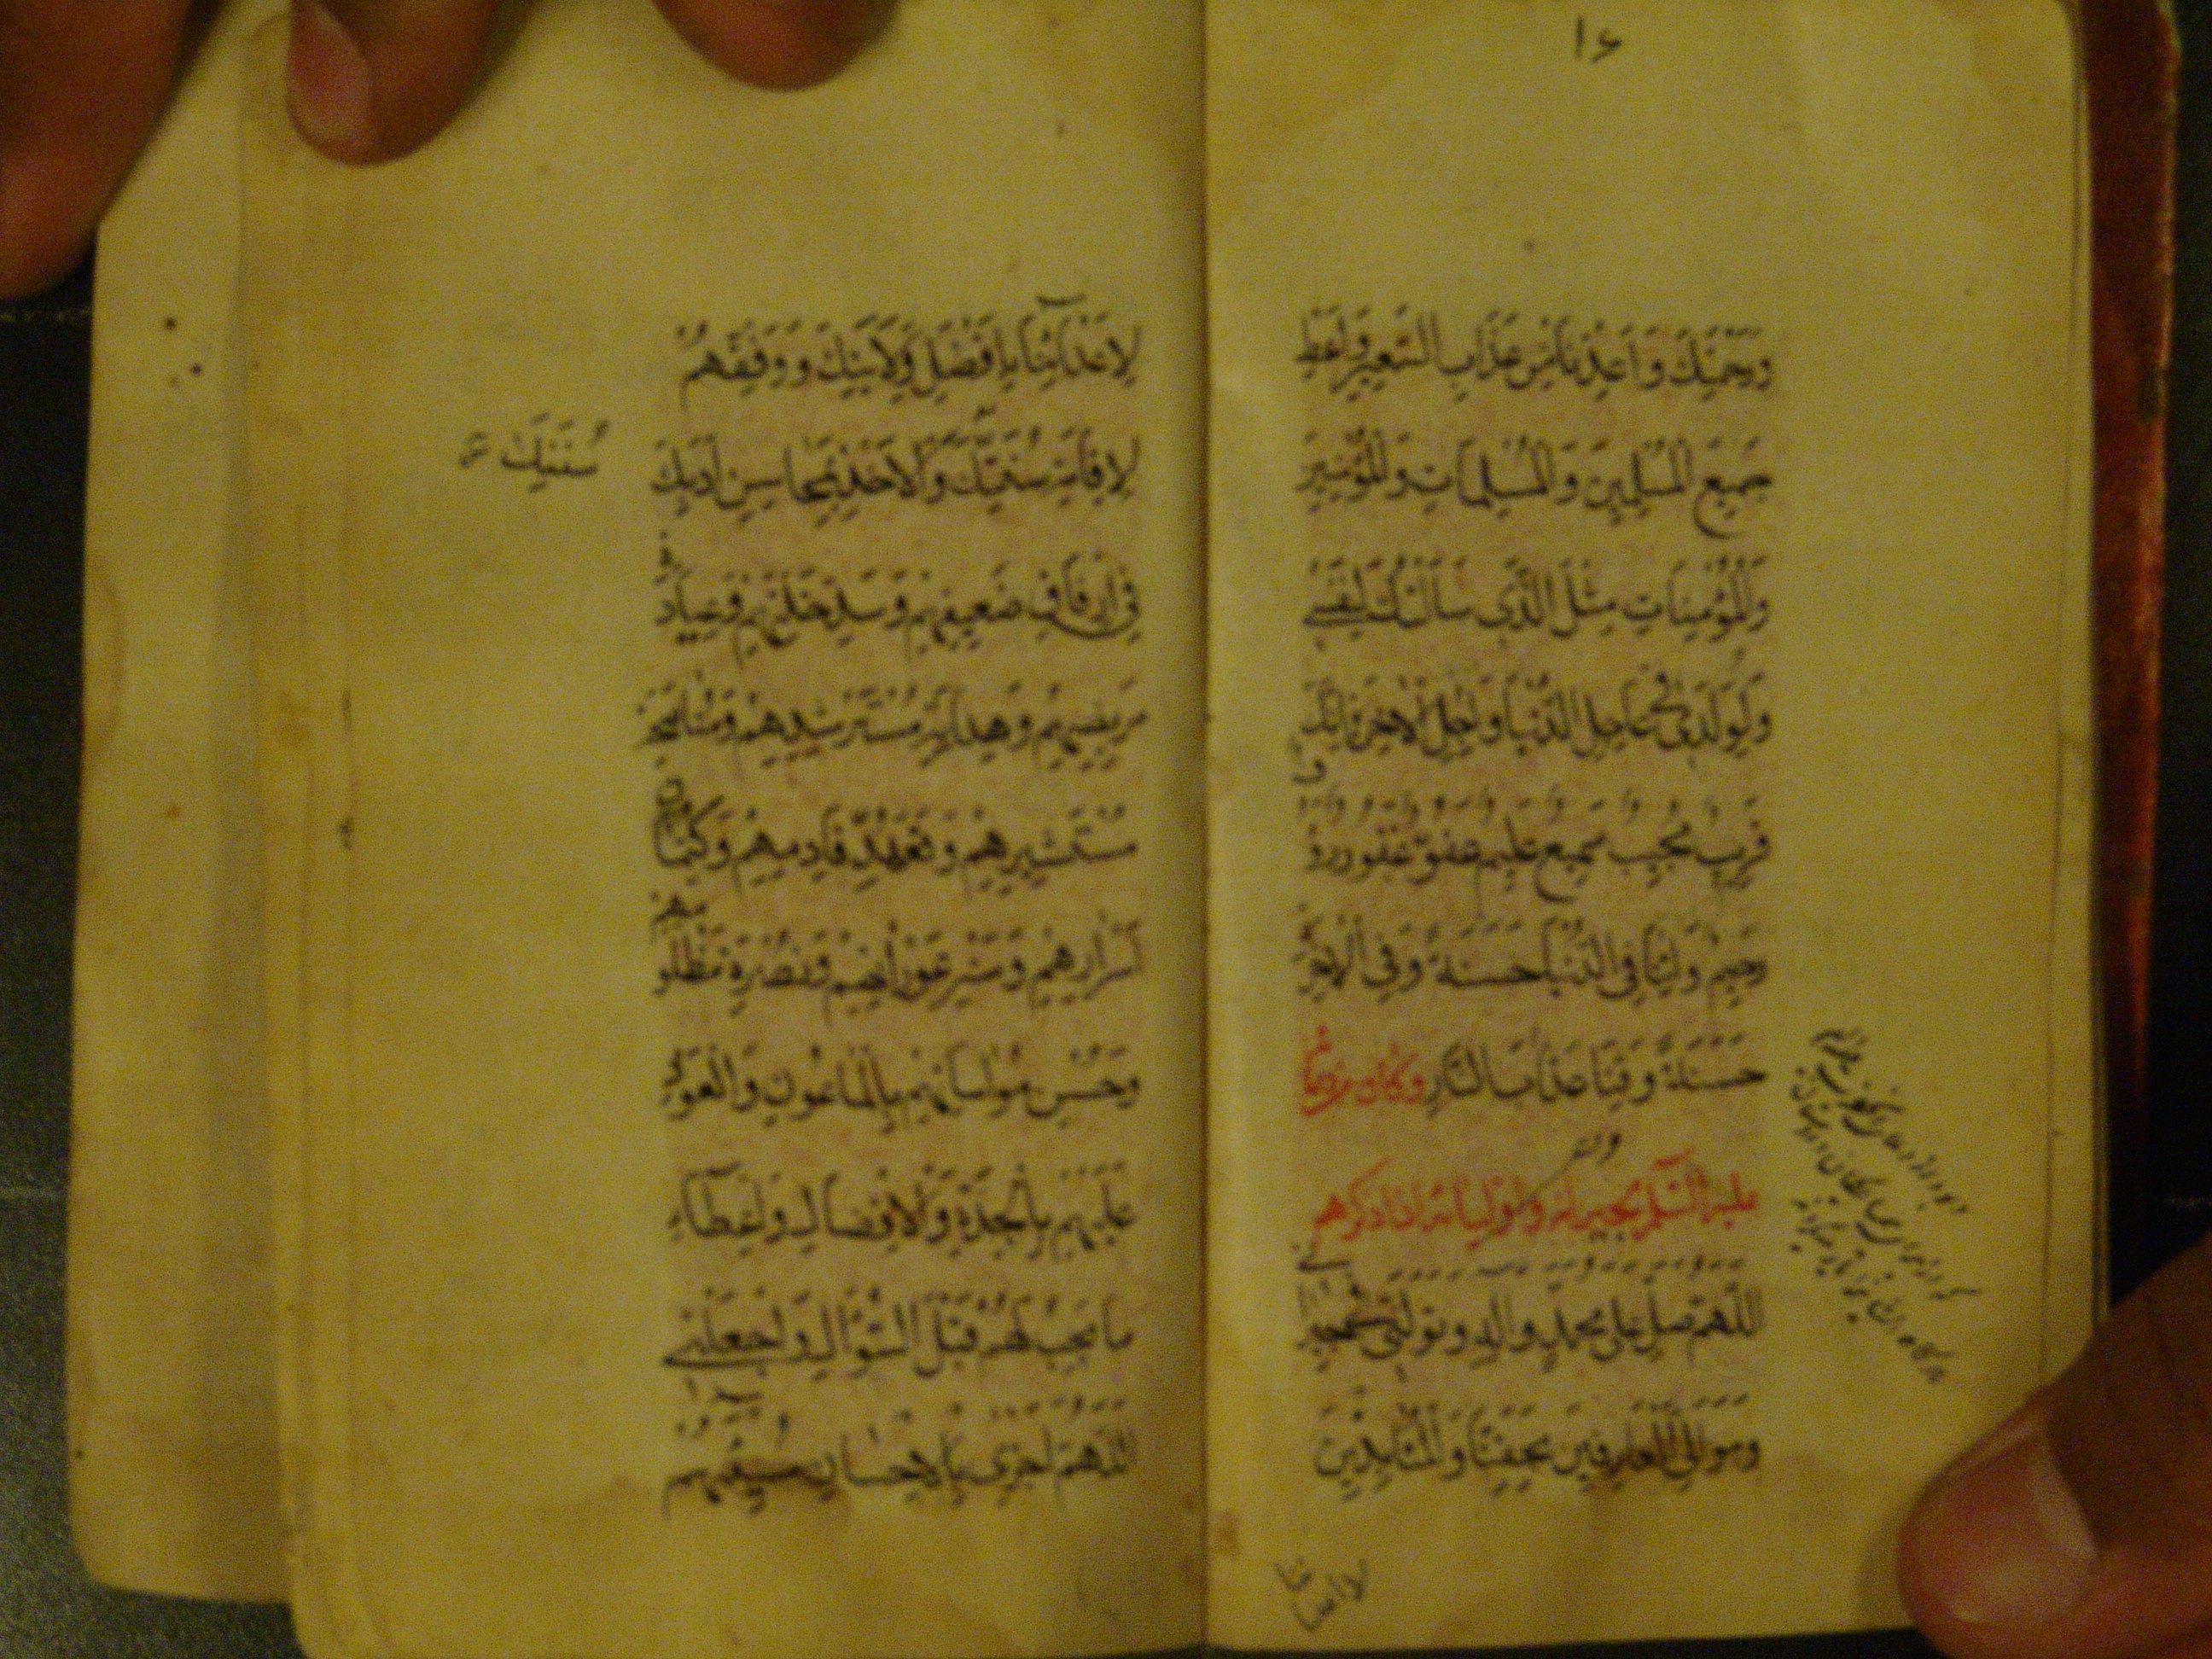 ١٤
ورحمتك واعذنا من عذاب السعير واعط
جميع المسلمين والمسلمات والمؤمنين
والمؤمنات مثل الذي سالتك لنفسي
ولولدي في عاجل الدنيا واجل الاخرة انك
قريب مجيب سميع عليم عفو غفور رؤف
رحيم واتنا في الدنيا حسنة وفي الاخرة
حسنة وقنا عذاب النار وكان من دعائه
عليه السلم لجيرانه واوليائه اذا ذكرهم
اللهم صل على محمد واله وتولني في جيراني
وموالي العارفين بحقنا والمنابذين
لاعدائنا بافضل ولايتك ووفقهم
لاقامة سنتك والاخذ بمحاسن ادبك
سننك
في ارفاق ضعيفهم وسد خلتهم وعيادة
مريضهم وهداية مسترشدهم ومناصحة
مستشيرهم وتعهد قادمهم وكتمان
اسرارهم وستر عوراتهم ونصرة مظلومهم
وحسن مواساتهم بالماعون والعود
عليهم بالجدة والافضال واعطاء
ما يجب لهم قبل السؤال واجعلني
اللهم اجزي بالاحسان مسيئهم